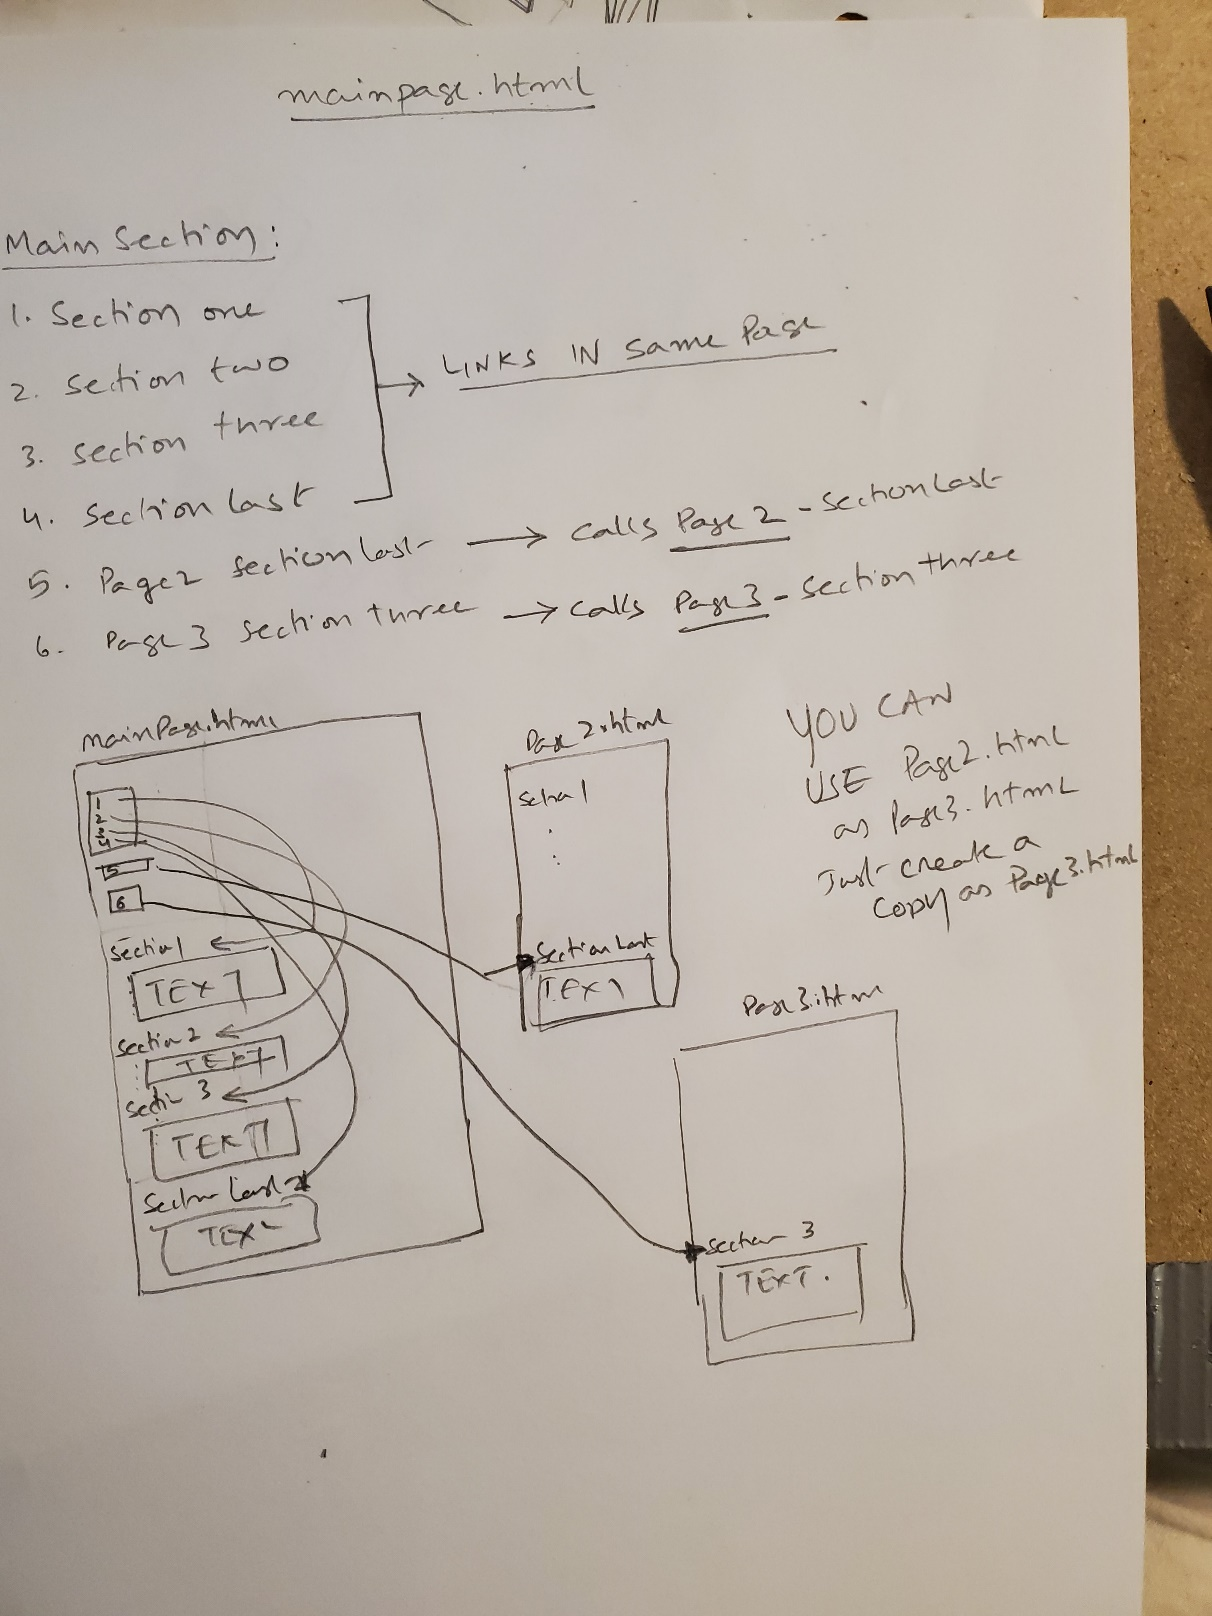 mainpage.html
Main Section:
1. Section one
2. Section two
3. Section three
4. Section Last
LINKS IN same Page
5. Page2 section last → calls Page 2 - Section Last
6. Page 3 Section three → calls Page 3 - Section three
mainPage.html
1
2
3
4
5
6
Section 1
TEXT
Section 2
TEXT
Section 3
TEXT
Section Last
TEXT
Page 2.html
Section 1
Section Last
TEXT
YOU CAN
USE Page2.html
as Page3.html
Just create a
copy as Page3.html
Page 3.html
Section 3
TEXT.